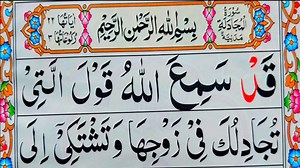 سُوْرَةُ الْمُجَادَلَةِ مَدَنِيَّةٌ
بِسْمِ اللهِ الرَّحْمٰنِ الرَّحِيْمِ
اٰيَاتُهَا ٢٢ رُكُوْعَاتُهَا ٣
قَدْ سَمِعَ اللهُ قَوْلَ الَّتِىْ
تُجَادِلُكَ فِىْ زَوْجِهَا وَتَشْتَكِىْٓ اِلَى